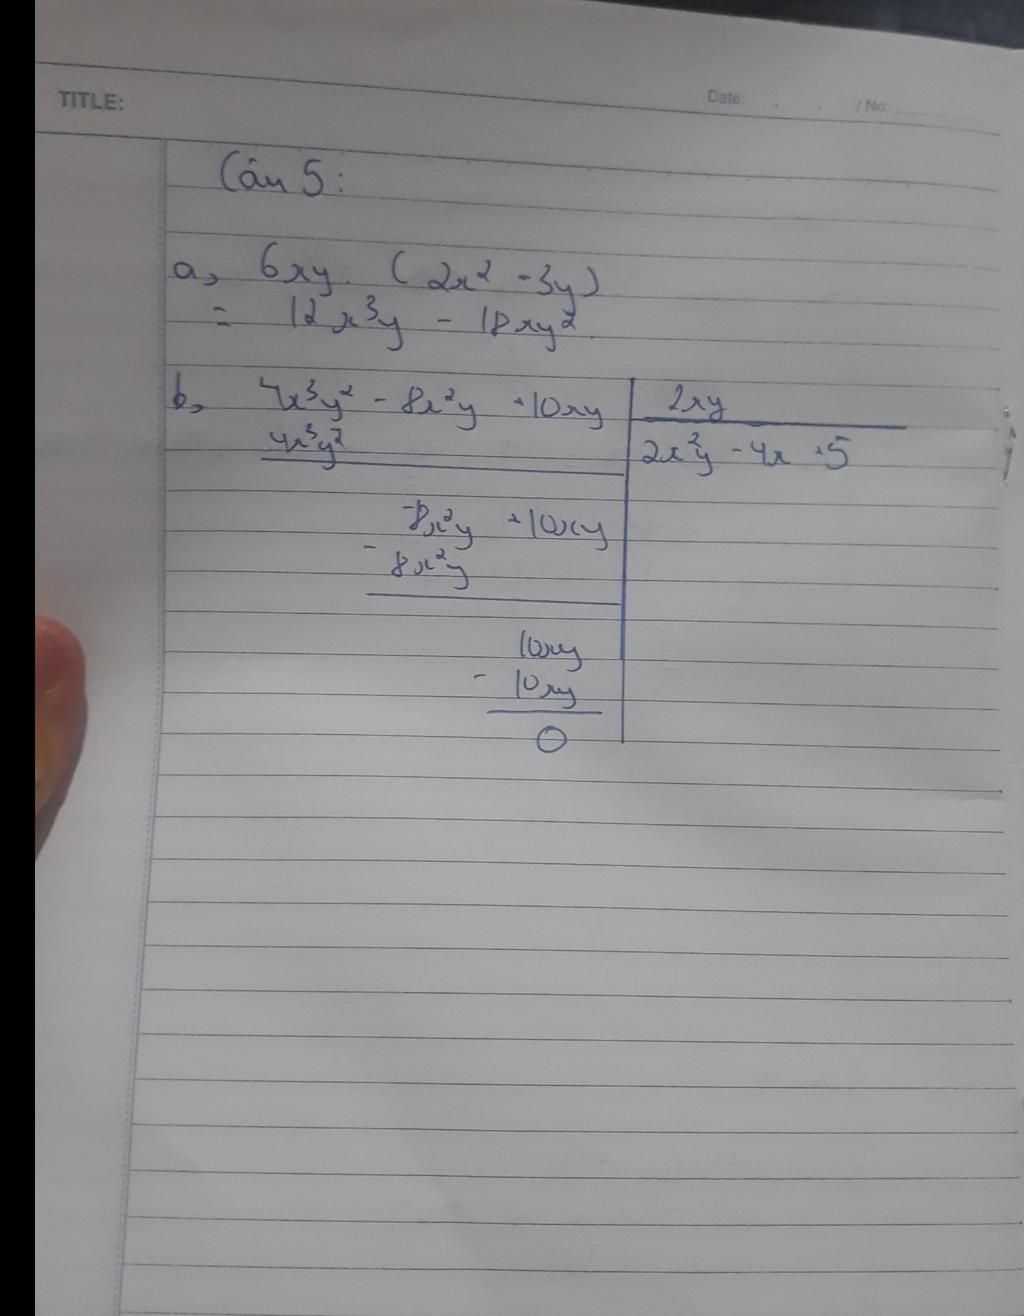 TITLE:
Date: . . / No:
Câu 5:
a, 6xy. (2x² - 3y)
= 12x³y - 18xy²
b, 4x³y² - 8x²y + 10xy | 2xy
4x³y² | 2x²y - 4x + 5
-8x²y + 10xy
- 8x²y
10xy
- 10xy
0